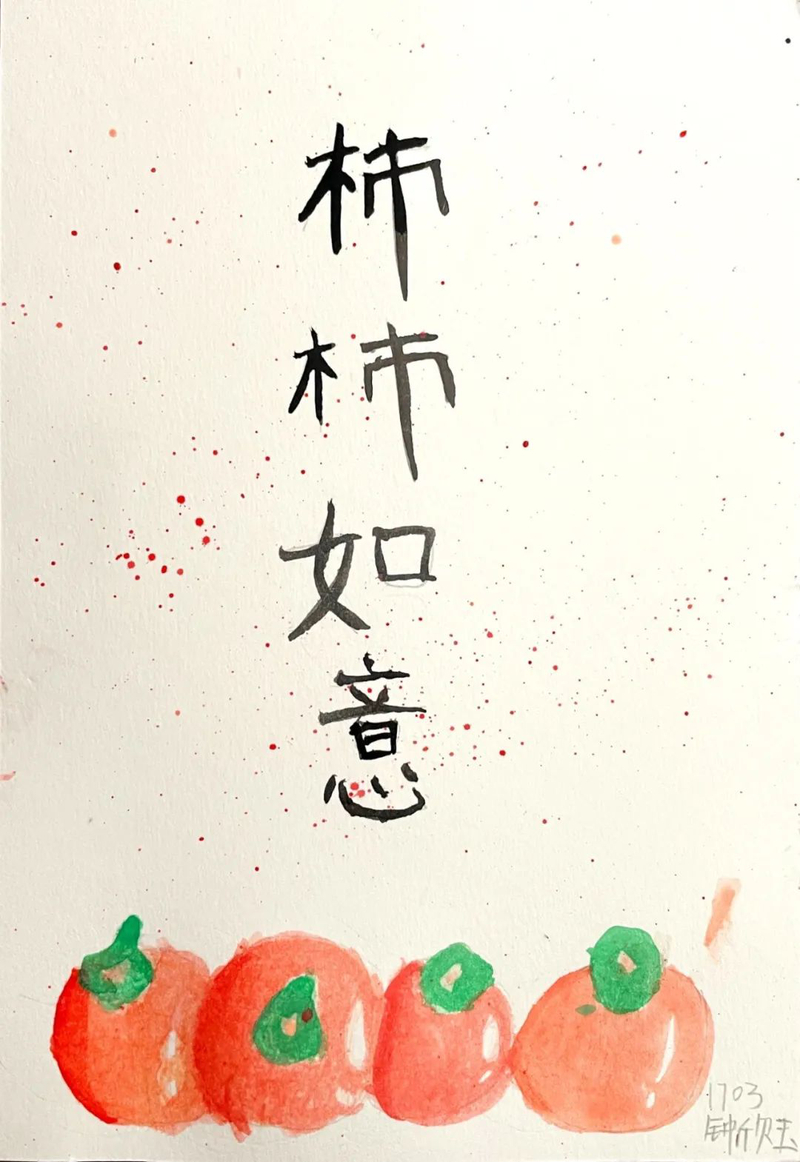 柿柿如意
1703
钟欣玉